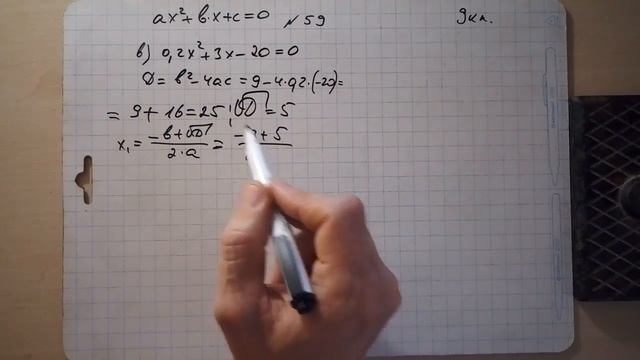 ax²+b·x+c=0 №59 9кл.
в) 0,2x²+3x-20=0
D=b²-4ac=9-4·0,2·(-20)=
=9+16=25; √D=5
x₁= (-b+√D)/(2·a) = (- +5)/